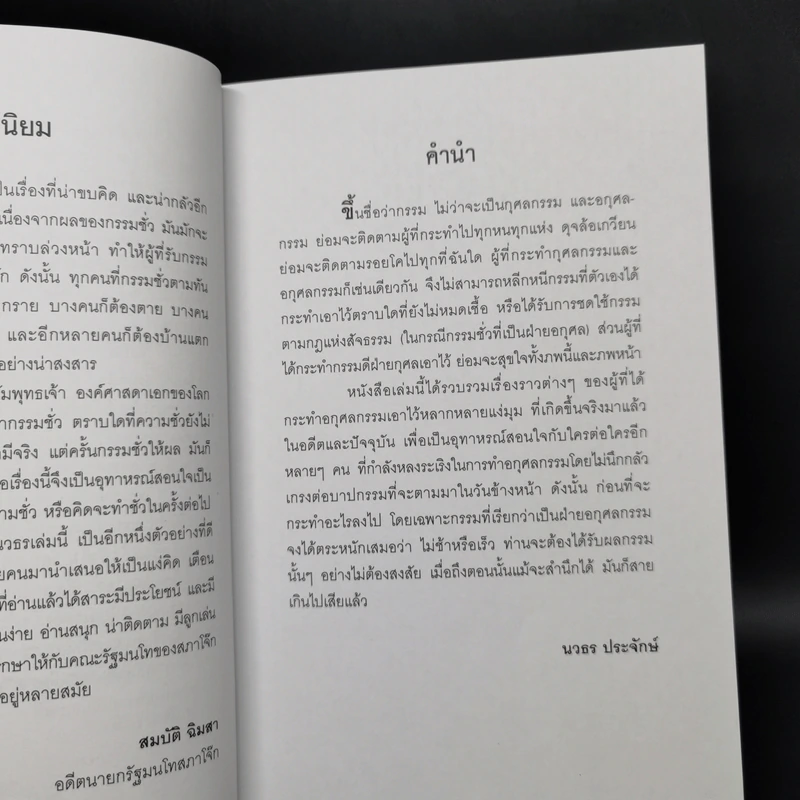 นิยม
ป็นเรื่องที่น่าขบคิด และน่ากลัวอีก
เนื่องจากผลของกรรมชั่ว มันมักจะ
ทราบล่วงหน้า ทำให้ผู้ที่รับกรรม
ัก ดังนั้น ทุกคนที่กรรมชั่วตามทัน
กราย บางคนก็ต้องตาย บางคน
และอีกหลายคนก็ต้องบ้านแตก
อย่างน่าสงสาร
ัมพุทธเจ้า องค์ศาสดาเอกของโลก
ากรรมชั่ว ตราบใดที่ความชั่วยังไม่
มีจริง แต่ครั้นกรรมชั่วให้ผล มันก็
อเรื่องนี้จึงเป็นอุทาหรณ์สอนใจเป็น
ามชั่ว หรือคิดจะทำชั่วในครั้งต่อไป
นวธรเล่มนี้ เป็นอีกหนึ่งตัวอย่างที่ดี
ยคนมานำเสนอให้เป็นแง่คิด เตือน
ที่อ่านแล้วได้สาระมีประโยชน์ และมี
นง่าย อ่านสนุก น่าติดตาม มีลูกเล่น
รึกษาให้กับคณะรัฐมนโทของสภาโจ๊ก
อยู่หลายสมัย
สมบัติ ฉิมสา
อดีตนายกรัฐมนโทสภาโจ๊ก
คำนำ
ขึ้นชื่อว่ากรรม ไม่ว่าจะเป็นกุศลกรรม และอกุศล-
กรรม ย่อมจะติดตามผู้ที่กระทำไปทุกหนทุกแห่ง ดุจล้อเกวียน
ย่อมจะติดตามรอยโคไปทุกที่ฉันใด ผู้ที่กระทำกุศลกรรมและ
อกุศลกรรมก็เช่นเดียวกัน จึงไม่สามารถหลีกหนีกรรมที่ตัวเองได้
กระทำเอาไว้ตราบใดที่ยังไม่หมดเชื้อ หรือได้รับการชดใช้กรรม
ตามกฎแห่งสัจธรรม (ในกรณีกรรมชั่วที่เป็นฝ่ายอกุศล) ส่วนผู้ที่
ได้กระทำกรรมดีฝ่ายกุศลเอาไว้ ย่อมจะสุขใจทั้งภพนี้และภพหน้า
หนังสือเล่มนี้ได้รวบรวมเรื่องราวต่างๆ ของผู้ที่ได้
กระทำอกุศลกรรมเอาไว้หลากหลายแง่มุม ที่เกิดขึ้นจริงมาแล้ว
ในอดีตและปัจจุบัน เพื่อเป็นอุทาหรณ์สอนใจกับใครต่อใครอีก
หลายๆ คน ที่กำลังหลงระเริงในการทำอกุศลกรรมโดยไม่นึกกลัว
เกรงต่อบาปกรรมที่จะตามมาในวันข้างหน้า ดังนั้น ก่อนที่จะ
กระทำอะไรลงไป โดยเฉพาะกรรมที่เรียกว่าเป็นฝ่ายอกุศลกรรม
จงได้ตระหนักเสมอว่า ไม่ช้าหรือเร็ว ท่านจะต้องได้รับผลกรรม
นั้นๆ อย่างไม่ต้องสงสัย เมื่อถึงตอนนั้นแม้จะสำนึกได้ มันก็สาย
เกินไปเสียแล้ว
นวธร ประจักษ์